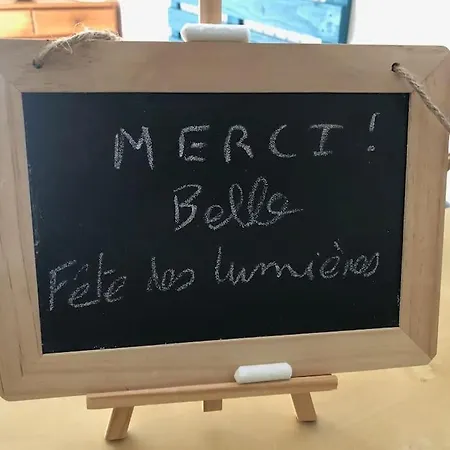 MERCI!
Belle
Fête des lumières